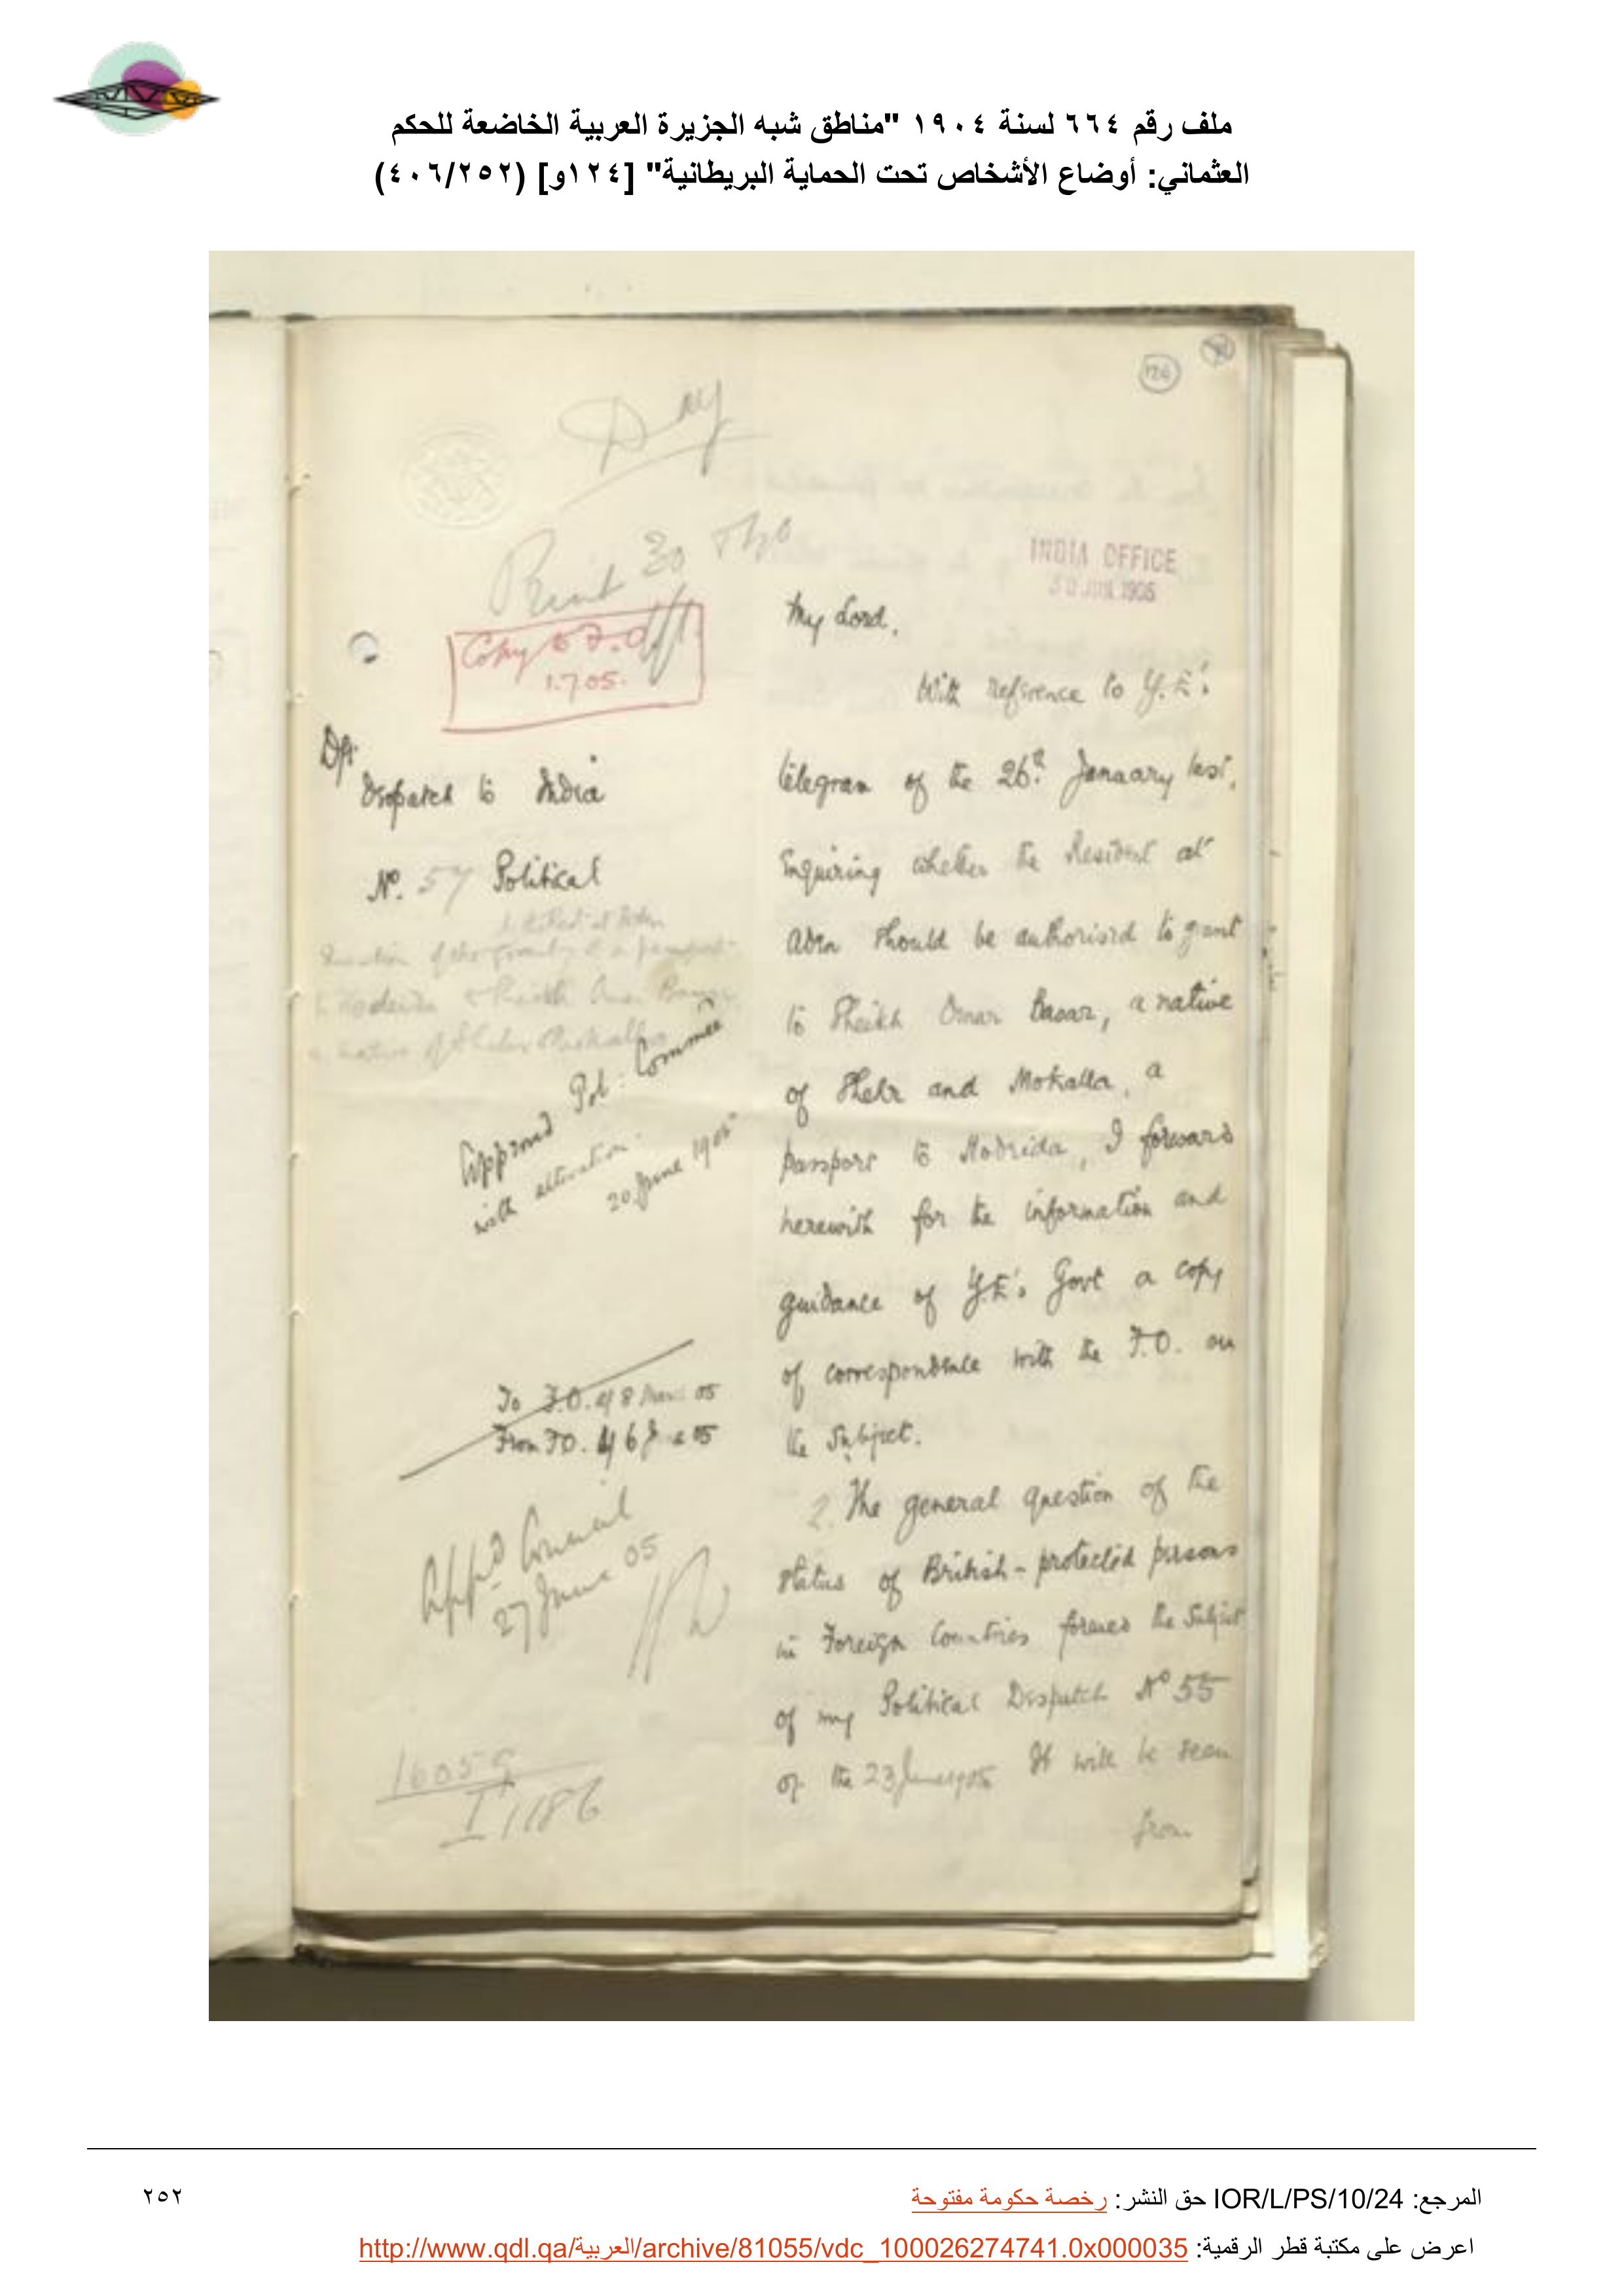 ملف رقم ٦٦٤ لسنة ١٩٠٤ "مناطق شبه الجزيرة العربية الخاضعة للحكم
العثماني: أوضاع الأشخاص تحت الحماية البريطانية" [١٢٤و] (٤٠٦/٢٥٢)
Print 30
Copy to F.O.
1.7.05.
INDIA OFFICE
1905
Dft.
Despatch to India
No. 57 Political
Approved Pol: Commee
with alteration.
20 June 1905
To F.O. of 8 05
From F.O. of 6 05
Appd Council
27 June 05
16059
I 1186
My Lord,
With reference to Y.E's
telegram of the 26th January last,
enquiring whether the Resident at
Aden should be authorised to grant
to Sheikh Omar Basar, a native
of Shehr and Mokalla, a
passport to Hodeida, I forward
herewith for the information and
guidance of Y.E's Govt a copy
of correspondence with the F.O. on
the subject.
2. The general question of the
status of British-protected persons
in Foreign Countries formed the subject
of my Political Despatch No 55
of the 23 June 1905 It will be seen
from
المرجع: IOR/L/PS/10/24 حق النشر: رخصة حكومة مفتوحة
٢٥٢
اعرض على مكتبة قطر الرقمية: http://www.qdl.qa/العربية/archive/81055/vdc_100026274741.0x000035